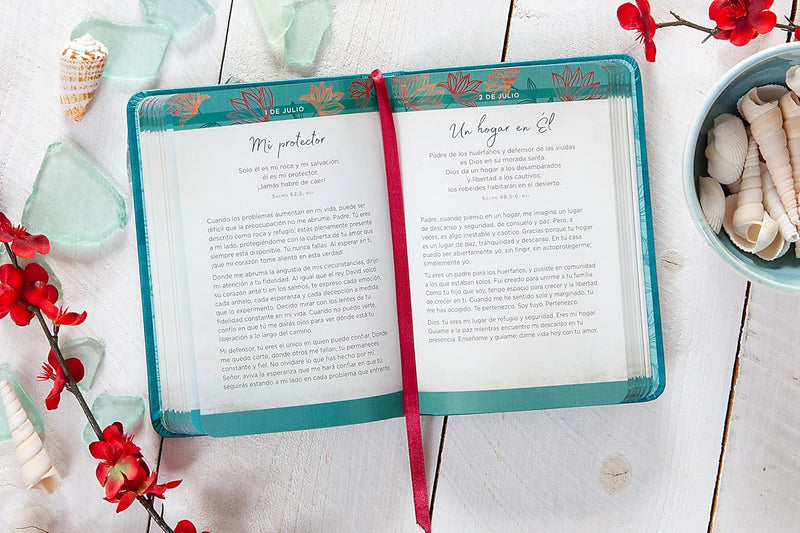 1 DE JULIO
Mi protector
Solo él es mi roca y mi salvación;
él es mi protector.
¡Jamás habré de caer!
Salmo 62:2, nvi
Cuando los problemas aumentan en mi vida, puede ser
difícil que la preocupación no me abrume, Padre. Tú eres
descrito como roca y refugio; estás plenamente presente
a mi lado, protegiéndome con la cubierta de tu amor que
siempre está disponible. Tú nunca fallas. Al esperar en ti,
¡que mi corazón tome aliento en esta verdad!
Donde me abruma la angustia de mis circunstancias, dirijo
mi atención a tu fidelidad. Al igual que el rey David volcó
su corazón ante ti en los salmos, te expreso cada emoción,
cada anhelo, cada esperanza y cada decepción a medida
que lo experimento. Decido mirar con los lentes de tu
fidelidad constante en mi vida. Cuando no puedo verte,
confío en que tú me darás ojos para ver dónde está tu
liberación a lo largo del camino.
Mi defensor, tú eres el único en quien puedo confiar. Donde
me quedo corto, donde otros me fallan, tú permaneces
constante y fiel. No olvidaré lo que has hecho por mí,
Señor, aviva la esperanza que me hará confiar en que tú
seguirás estando a mi lado en cada problema que enfrente.
2 DE JULIO
Un hogar en Él
Padre de los huérfanos y defensor de las viudas
es Dios en su morada santa.
Dios da un hogar a los desamparados
y libertad a los cautivos;
los rebeldes habitarán en el desierto.
Salmo 68:5-6, nvi
Padre, cuando pienso en un hogar, me imagino un lugar
de descanso y seguridad, de consuelo y paz. Pero, a
veces, es algo inestable y caótico. Gracias porque tu hogar
es un lugar de paz, tranquilidad y descanso. En tu casa
puedo ser abiertamente yo, sin fingir, sin autoprotegerme;
simplemente yo.
Tú eres un padre para los huérfanos, y pusiste en comunidad
a los que estaban solos. Fui creado para unirme a tu familia.
Como tu hijo que soy, tengo espacio para crecer y la libertad
de crecer en ti. Cuando me he sentido solo y marginado, tú
me has acogido. Te pertenezco. Soy tuyo. Pertenezco.
Dios, tú eres mi lugar de refugio y seguridad. Eres mi hogar.
Guíame a la paz mientras encuentro mi descanso en tu
presencia. Enséñame y guíame; dame vida hoy con tu amor.